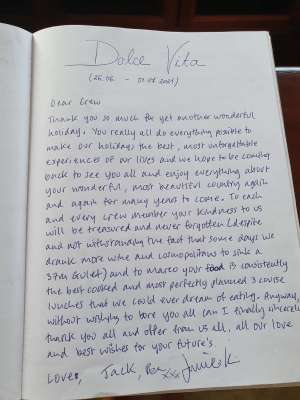 Dolce Vita
(25.06 - 01.07 2001)
Dear Crew
Thank you so much for yet another wonderful
holiday. You really all do everything possible to
make our holidays the best, most unforgettable
experiences of our lives and we hope to be coming
back to see you all and enjoy everything about
your wonderful, most beautiful country again
and again for many years to come. To each
and every crew member your kindness to us
will be treasured and never forgotten (despite
and not withstanding the fact that some days we
drank more wine and cosmopolitans to sink a
37m Gulet) and to Marco your food is consistently
the best cooked and most perfectly planned 3 course
lunches that we could ever dream of eating. Anyway,
without wishing to bore you all can I finally sincerely
thank you all and offer from us all, all our love
and best wishes for your future's
Love, Jack,